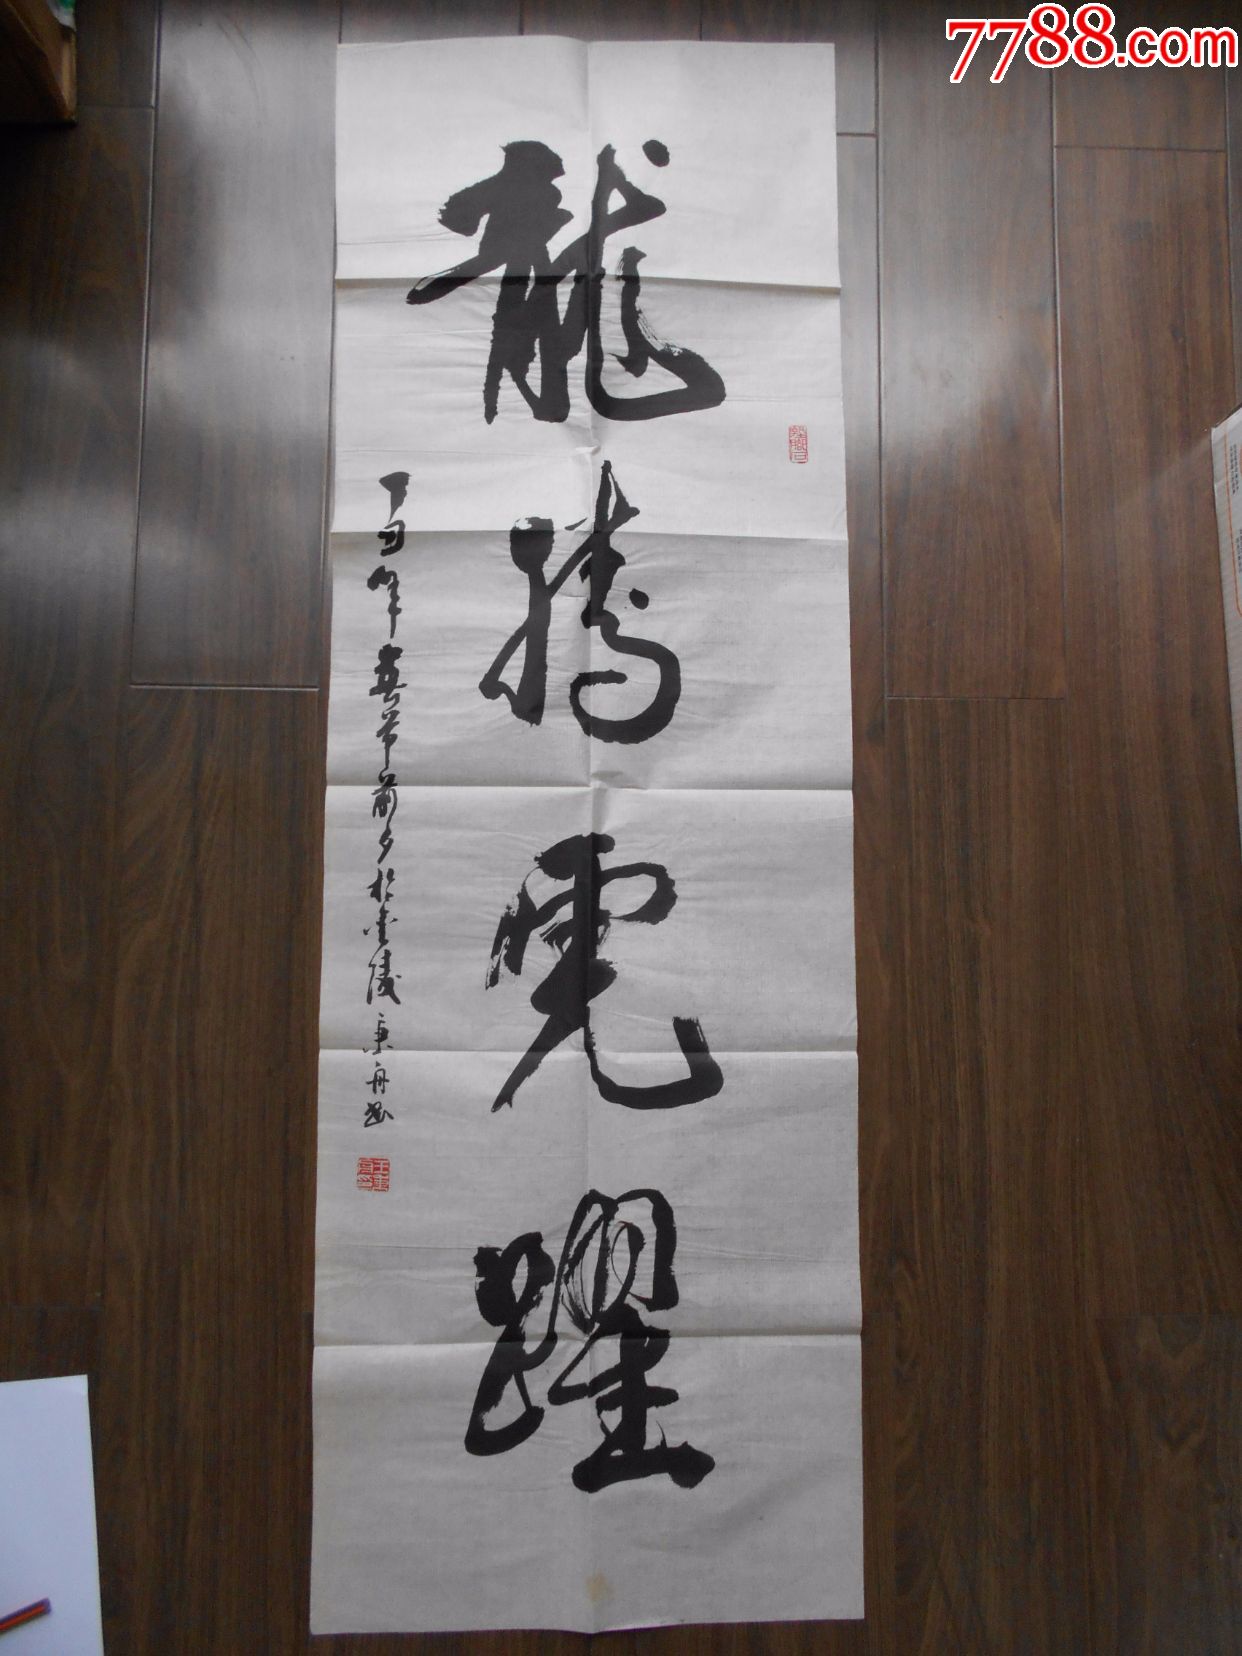 7788.com
龍騰虎躍
丁丑年春节前夕於金陵秉舟书